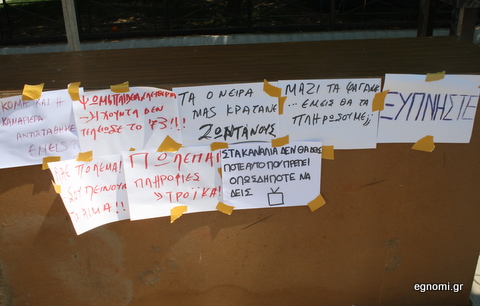 ΚΟΜΕ ΚΑΙ Η
ΚΑΝΑΡΙΕΡΑ
ΑΝΤΙΣΤΑΘΗΚΕ
ΕΜΕΙΣ
ΨΩΜΙ ΠΑΙΔΕΙΑ ΕΛΕΥΘΕΡΙΑ
Η ΧΟΥΝΤΑ ΔΕΝ
ΤΕΛΕΙΩΣΕ ΤΟ '73!!!
ΤΑ ΟΝΕΙΡΑ
ΜΑΣ ΚΡΑΤΑΝΕ
ΖΩΝΤΑΝΟΥΣ
ΜΑΖΙ ΤΑ ΦΑΓΑΝΕ
...ΕΜΕΙΣ ΘΑ ΤΑ
ΠΛΗΡΩΣΟΥΜΕ;;
ΞΥΠΝΗΣΤΕ
ΠΟΛΕΜΑ!
ΠΙΝΟΥΝ
ΑΙΜΑ!!
ΠΟΛΕΠΑ!
ΠΛΗΡΟΦΙΕΣ
ΤΡΟΪΚΑ!
ΣΤΑ ΚΑΝΑΛΙΑ ΔΕΝ ΘΑ ΔΕΙΣ
ΠΟΤΕ ΑΥΤΟ ΠΟΥ ΠΡΕΠΕΙ
ΟΠΩΣΔΗΠΟΤΕ ΝΑ
ΔΕΙΣ
egnomi.gr